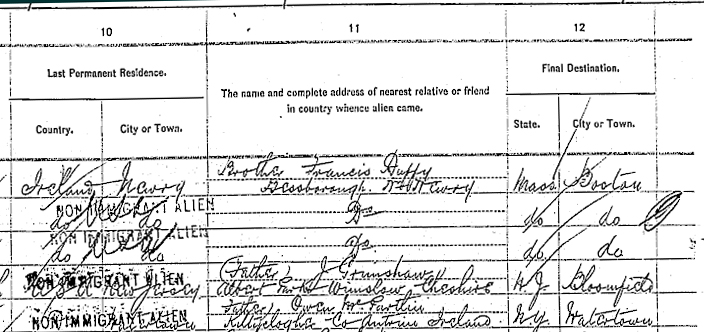 10
11
12
Last Permanent Residence.
The name and complete address of nearest relative or friend
in country whence alien came.
Final Destination.
Country.
City or Town.
State.
City or Town.
Brother Francis Duffy
Ireland Newry
Bessborough Newry
Mass Boston
NON IMMIGRANT ALIEN
do do
Do
do do
NON IMMIGRANT ALIEN
do do
do
do do
Father J Grimshaw
NON IMMIGRANT ALIEN
Albert Park Winslow Cheshire
N.J. Bloomfield
Father Owen
NON IMMIGRANT ALIEN
Co Antrim Ireland
N.Y. Watertown